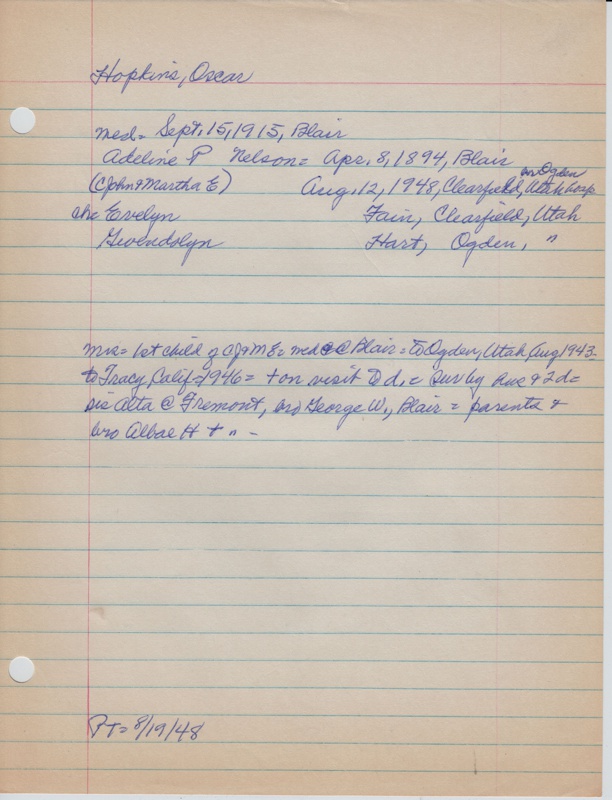 Hopkins, Oscar
med= Sept. 15, 1915, Blair
Adeline P Nelson= Apr. 8, 1894, Blair
(CJohn & Martha E) Aug. 12, 1948, Clearfield, Utah hosp
in Ogden
che Evelyn Fain, Clearfield, Utah
Gwendolyn Hart, Ogden, "
Mrs= 1st child of CJ & ME= med @ Blair= to Ogden, Utah, Aug 1943-
to Tracy, Calif= 1946= + on visit to d.= sur by hus & 2 d=
sis Alta @ Fremont, bro George W., Blair = parents &
bro Albae H + " -
PT= 8/19/48